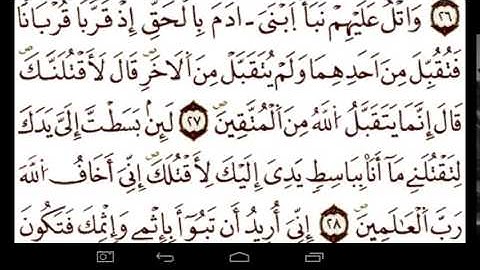 ٢٦ وَاتْلُ عَلَيْهِمْ نَبَأَ اَبْنَىْ ءَادَمَ بِالْحَقِّ إِذْ قَرَّبَا قُرْبَانًا
فَتُقُبِّلَ مِنَ اَحَدِهِمَا وَلَمْ يُتَقَبَّلْ مِنَ اَلَاخَرِ قَالَ لَأَقْتُلَنَّكَ
قَالَ إِنَّمَا يَتَقَبَّلُ اللَّهُ مِنَ الْمُتَّقِينَ ٢٧ لَئِنۢ بَسَطتَ إِلَىَّ يَدَكَ
لِتَقْتُلَنِى مَآ أَنَا۠ بِبَاسِطٍ يَدِىَ إِلَيْكَ لِأَقْتُلَكَ إِنِّىَ أَخَافُ اللَّهَ
رَبَّ الْعَٰلَمِينَ ٢٨ إِنِّىَ أُرِيدُ أَن تَبُوٓأَ بِإِثْمِى وَإِثْمِكَ فَتَكُونَ